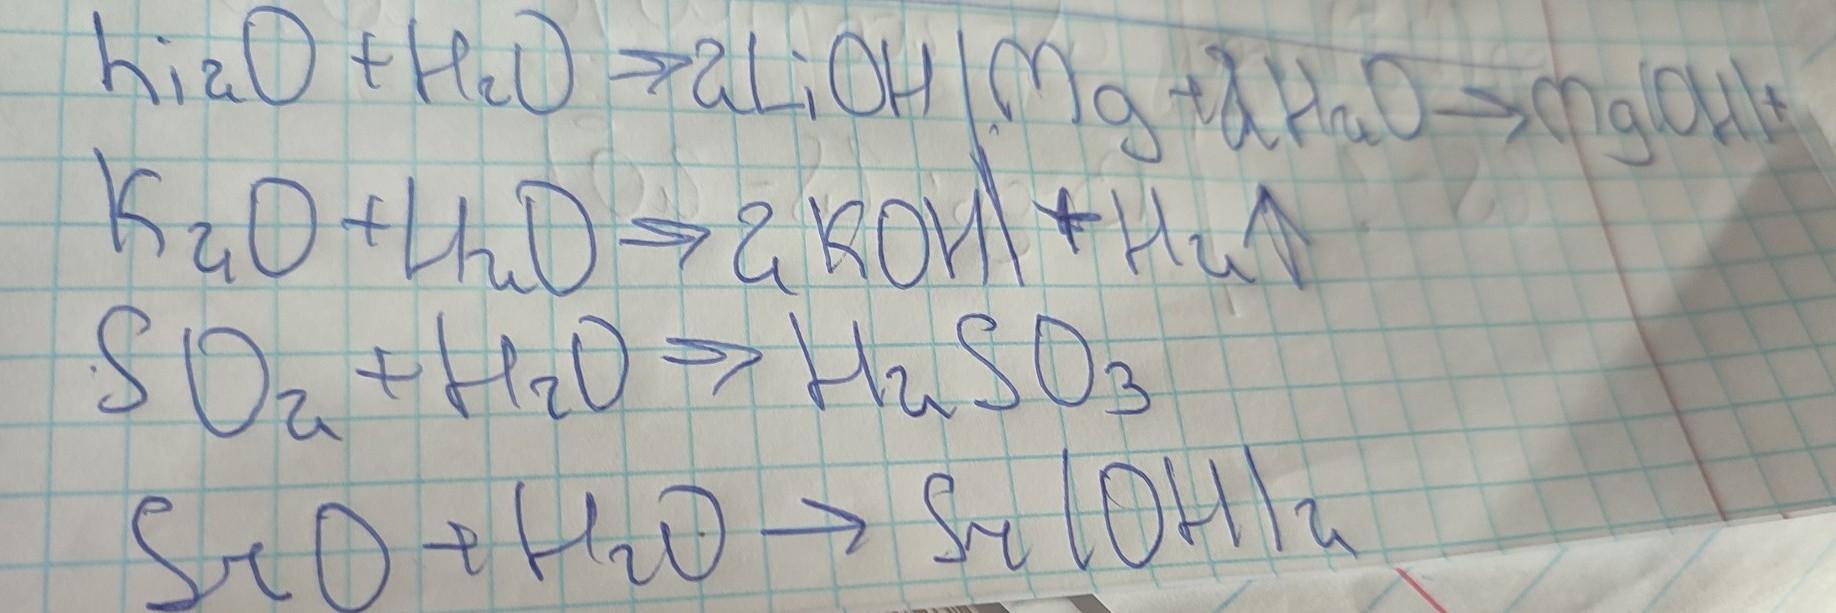 Li2O + H2O → 2LiOH | Mg + 2H2O → Mg(OH)+
K2O + H2O → 2KOH | + H2↑
SO2 + H2O → H2SO3
SrO + H2O → Sr(OH)2